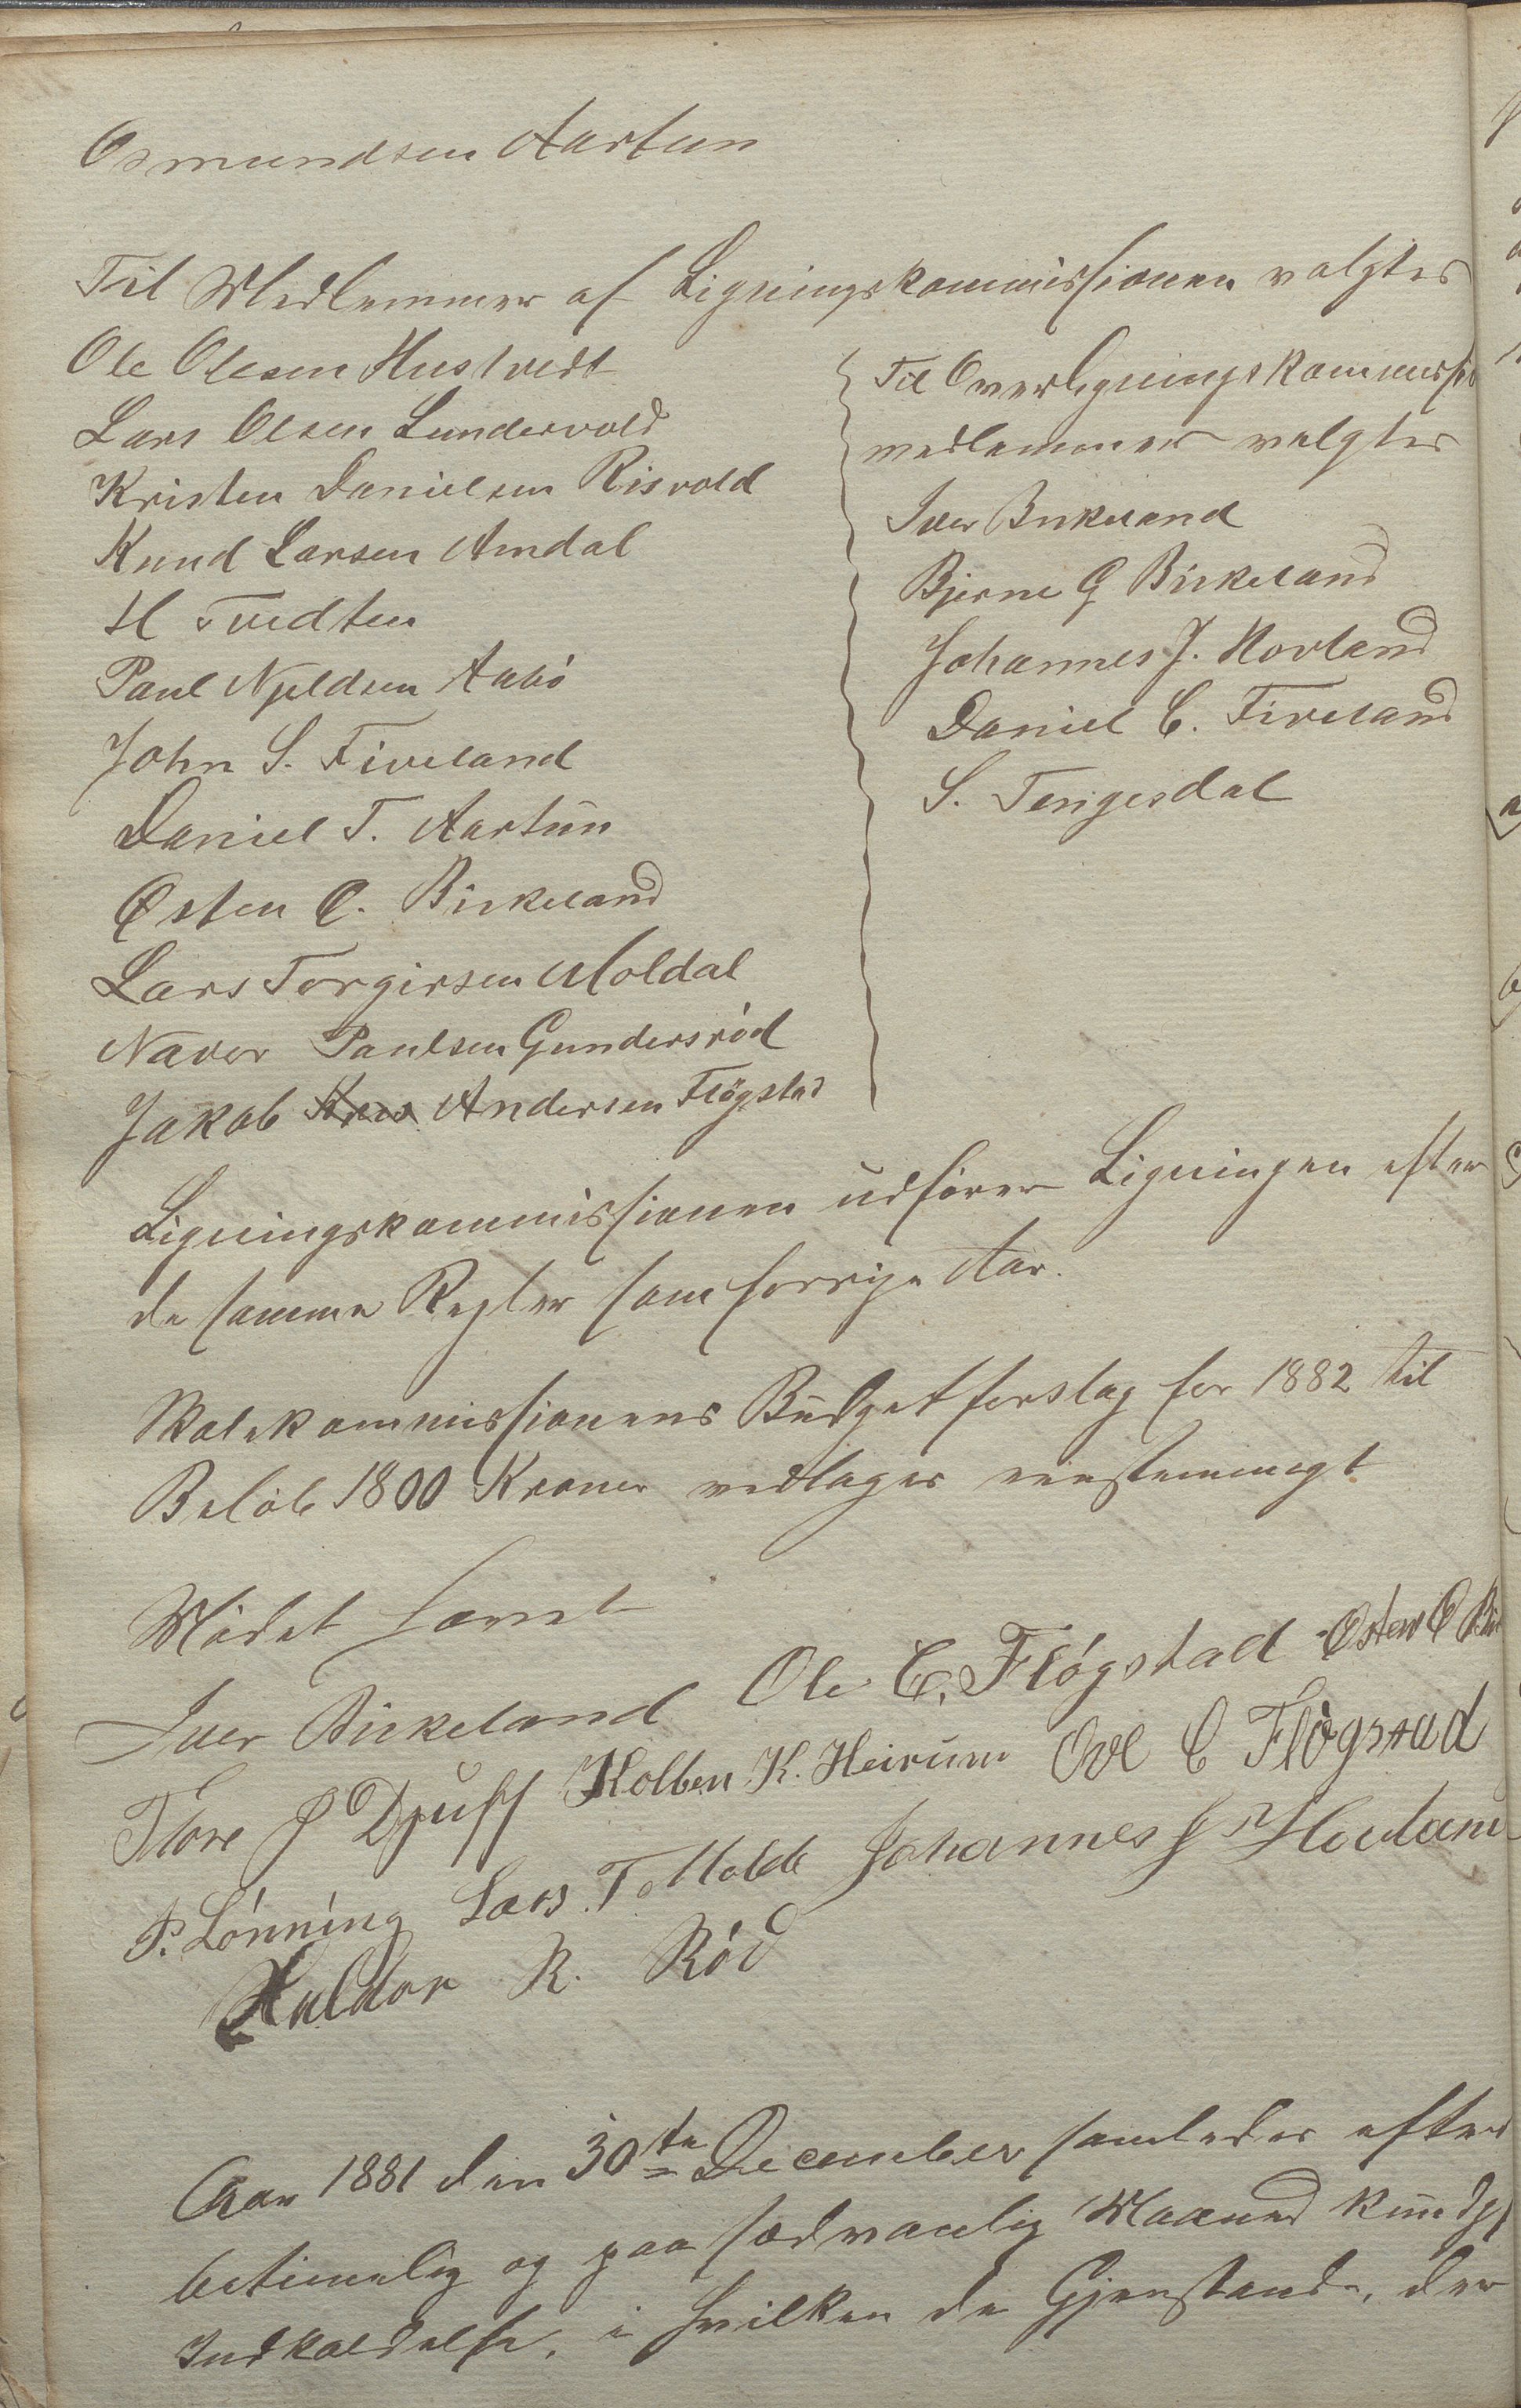 Osmundsen Aartun
Til Medlemmer af Ligningskommissionen valgtes
Ole Olesen Hustvedt
Lars Olsen Lundervold
Kristen Danielsen Risvold
Knud Larsen Amdal
H Tvedten
Paul Njeldsen Aabö
John S. Fiveland
Daniel T. Aartun
Østen C. Birkeland
Lars Torgirsen Moldal
Naver Paulsen Gundersröd
Jakob Andersen Flögstad
Til Overligningskommissio
medlemmer valgtes
Iver Birkeland
Bjerne G Birkeland
Johannes J. Hovland
Daniel C. Fiveland
S. Tengesdal
Ligningskommissionen udfører Ligningen efter
de samme Regler som forrige Aar.
Skolekommissionens Budgetforslag for 1882 til
Beløb 1800 Kroner vedtages eenstemmigt
Mødet hævet
Iver Birkeland Ole C. Flógstad Østen C Bir
Tore J Djuff Kolben K. Heirum Ole C Flògstad
P. Lönning Lars. T. Molde Johannes J Hovland
Haldor R. Röd
Aar 1881 den 30te December samledes efter
betimelig og paa sædvanlig Maaned kundgj
Indkaldelse, i hvilken de Gjenstande, der